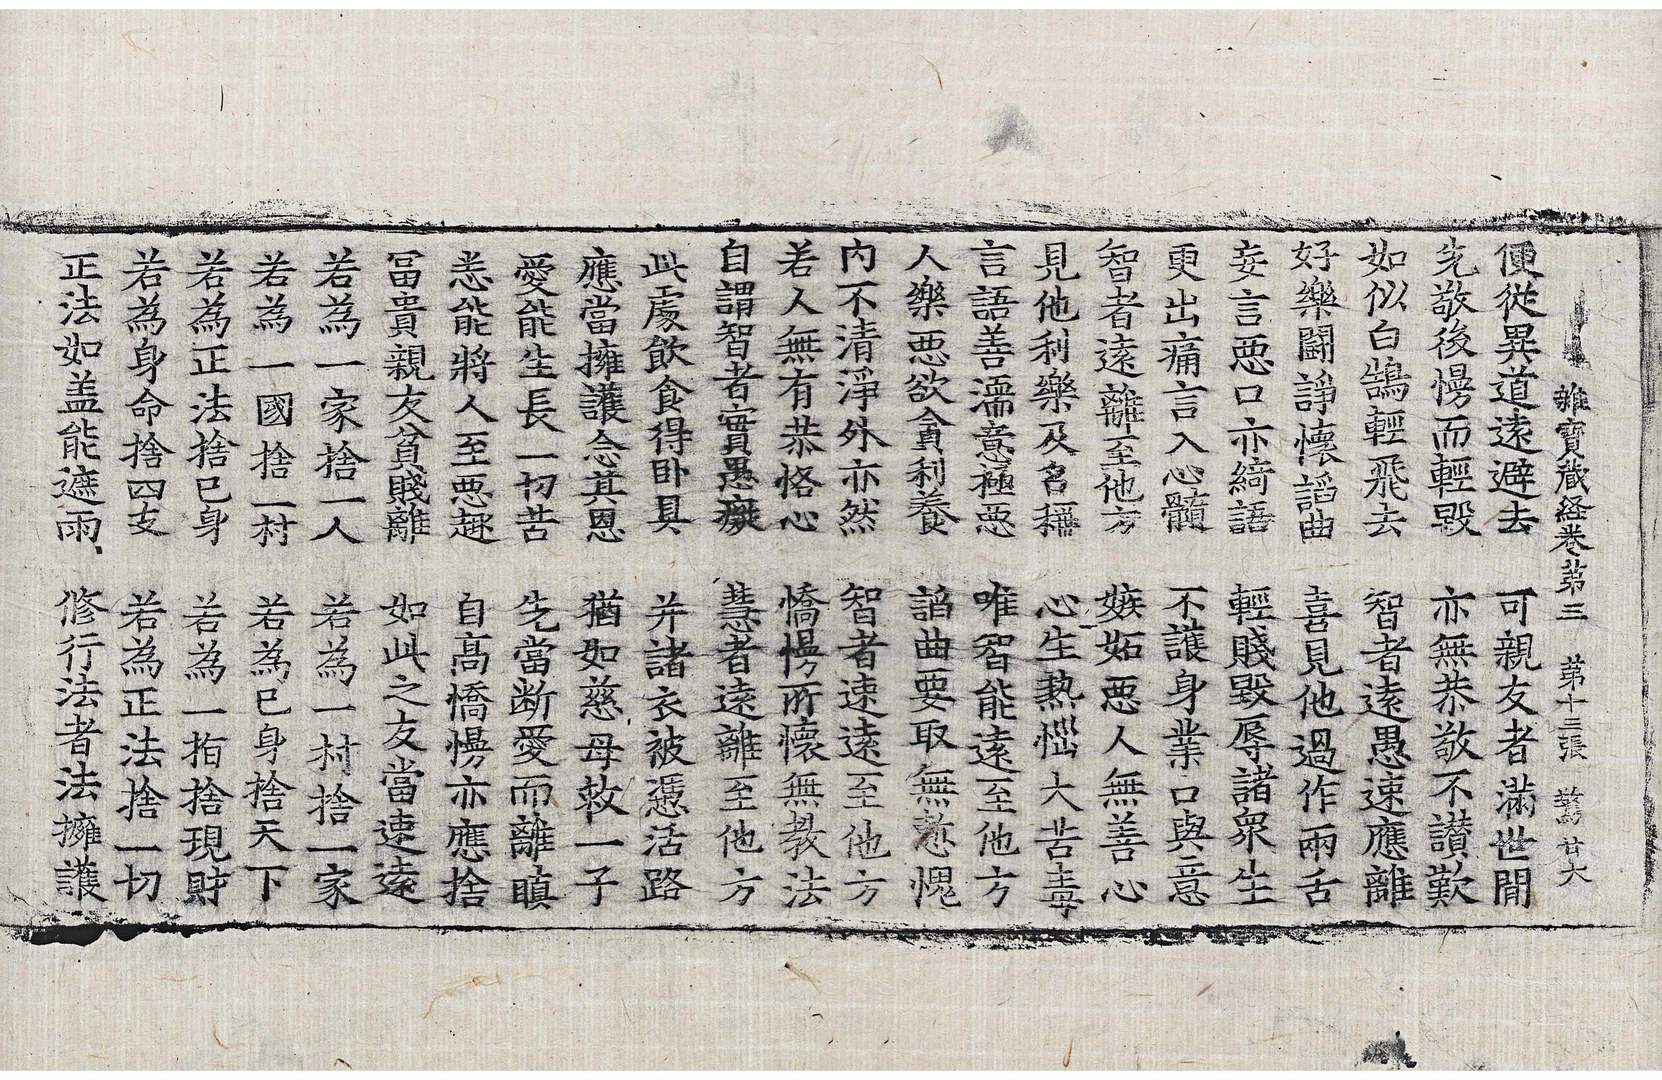 雜寶蔵経卷第三 第十三張 驚 廿大
便從異道遠避去 可親友者滿世間
先敬後慢而輕毀 亦無恭敬不讃歎
如似白鵠輕飛去 智者遠愚速應離
好樂鬪諍懷諂曲 喜見他過作兩舌
妄言惡口亦綺語 輕賤毀辱諸衆生
更出痛言入心髓 不護身業口與意
智者遠離至他方 嫉妬惡人無善心
見他利樂及名稱 心生熱惱大苦毒
言語善濡意極惡 唯智能遠至他方
人樂惡欲貪利養 諂曲要取無慙愧
內不清淨外亦然 智者速遠至他方
若人無有恭恪心 憍慢所懷無教法
自謂智者實愚癡 慧者遠離至他方
此處飲食得卧具 并諸衣被憑活路
應當擁護念其恩 猶如慈母救一子
愛能生長一切苦 先當断愛而離瞋
恚能將人至惡趣 自髙憍慢亦應捨
冨貴親友貧賤離 如此之友當速遠
若為一家捨一人 若為一村捨一家
若為一國捨一村 若為己身捨天下
若為正法捨己身 若為一指捨現財
若為身命捨四支 若為正法捨一切
正法如盖能遮雨 修行法者法擁護